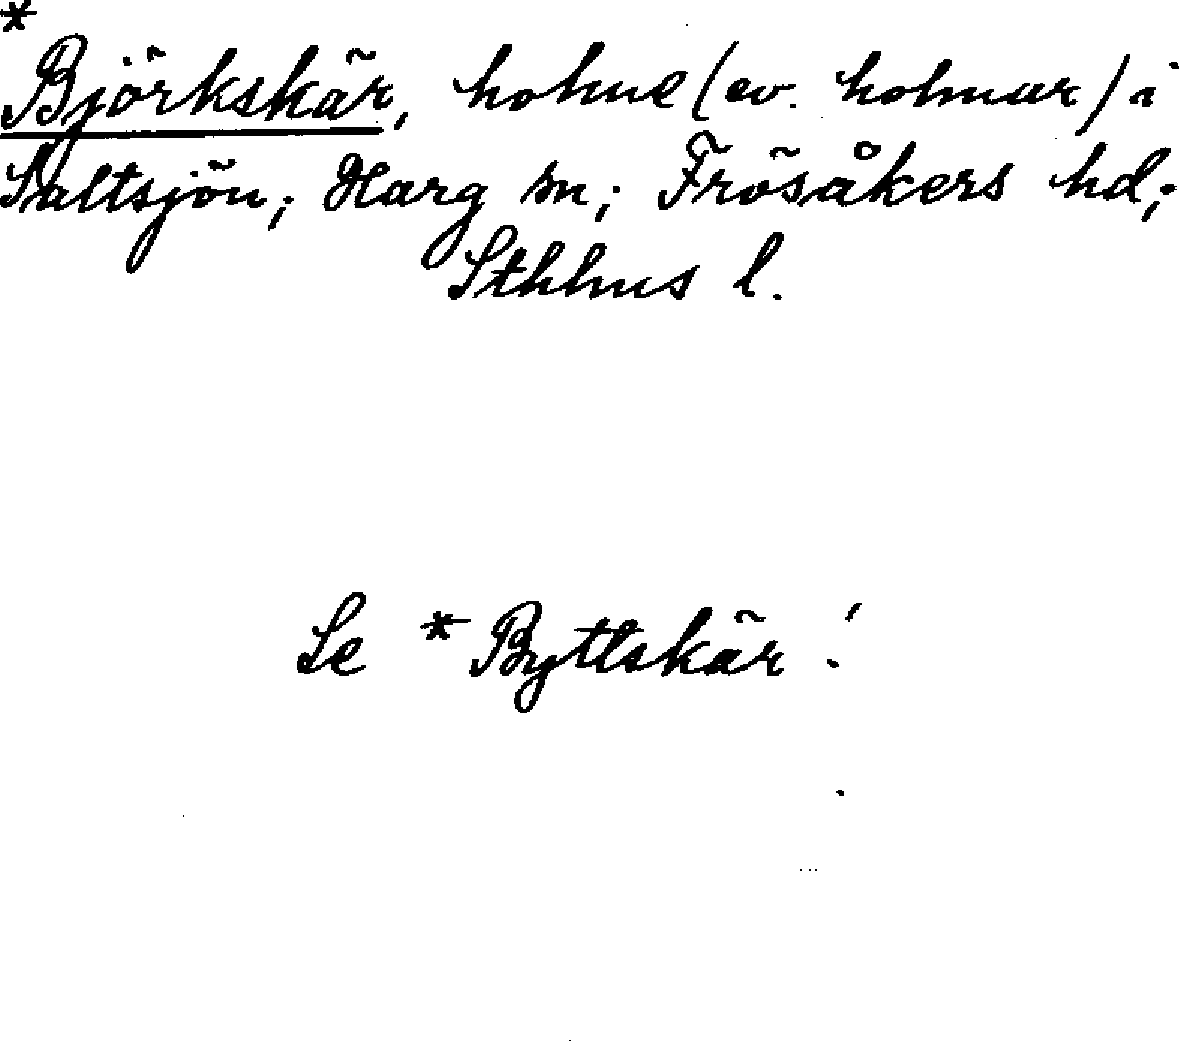 *
Björkskär, holme (ev. holmar) i
Saltsjön; Harg sn; Frösåkers hd;
Sthlms l.
Se *Byttskär!